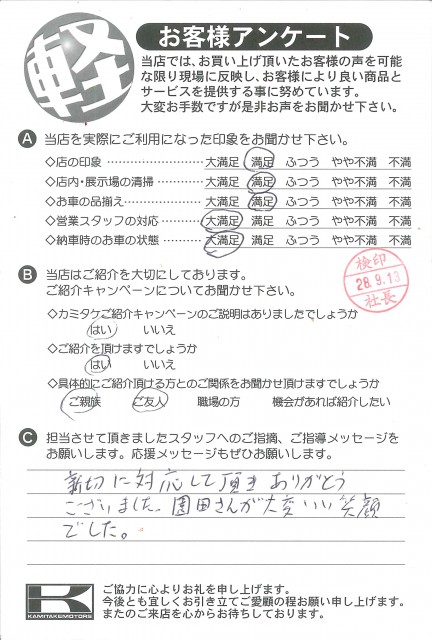 軽
お客様アンケート
当店では、お買い上げ頂いたお客様の声を可能
な限り現場に反映し、お客様により良い商品と
サービスを提供する事に努めています。
大変お手数ですが是非お声をお聞かせ下さい。
A 当店を実際にご利用になった印象をお聞かせ下さい。
◇店の印象 ………………… 大満足 満足 ふつう やや不満 不満
◇店内・展示場の清掃 ………… 大満足 満足 ふつう やや不満 不満
◇お車の品揃え ………………… 大満足 満足 ふつう やや不満 不満
◇営業スタッフの対応 ………… 大満足 満足 ふつう やや不満 不満
◇納車時のお車の状態 ………… 大満足 満足 ふつう やや不満 不満
B 当店はご紹介を大切にしております。
ご紹介キャンペーンについてお聞かせ下さい。
検印
28.9.13
社長
◇カミタケご紹介キャンペーンのご説明はありましたでしょうか
はい いいえ
◇ご紹介を頂けますでしょうか
はい いいえ
◇具体的にご紹介頂ける方とのご関係をお聞かせ頂けますでしょうか
ご親族 ご友人 職場の方 機会があれば紹介したい
C 担当させて頂きましたスタッフへのご指摘、ご指導メッセージを
お願いします。応援メッセージもぜひお願いします。
親切に対応して頂き ありがとう
ございました。園田さんが大変いい笑顔
でした。
K
KAMITAKEMOTORS
ご協力に心よりお礼を申し上げます。
今後とも宜しくお引き立てご愛顧の程お願い申し上げます。
またのご来店を心からお待ちしております。